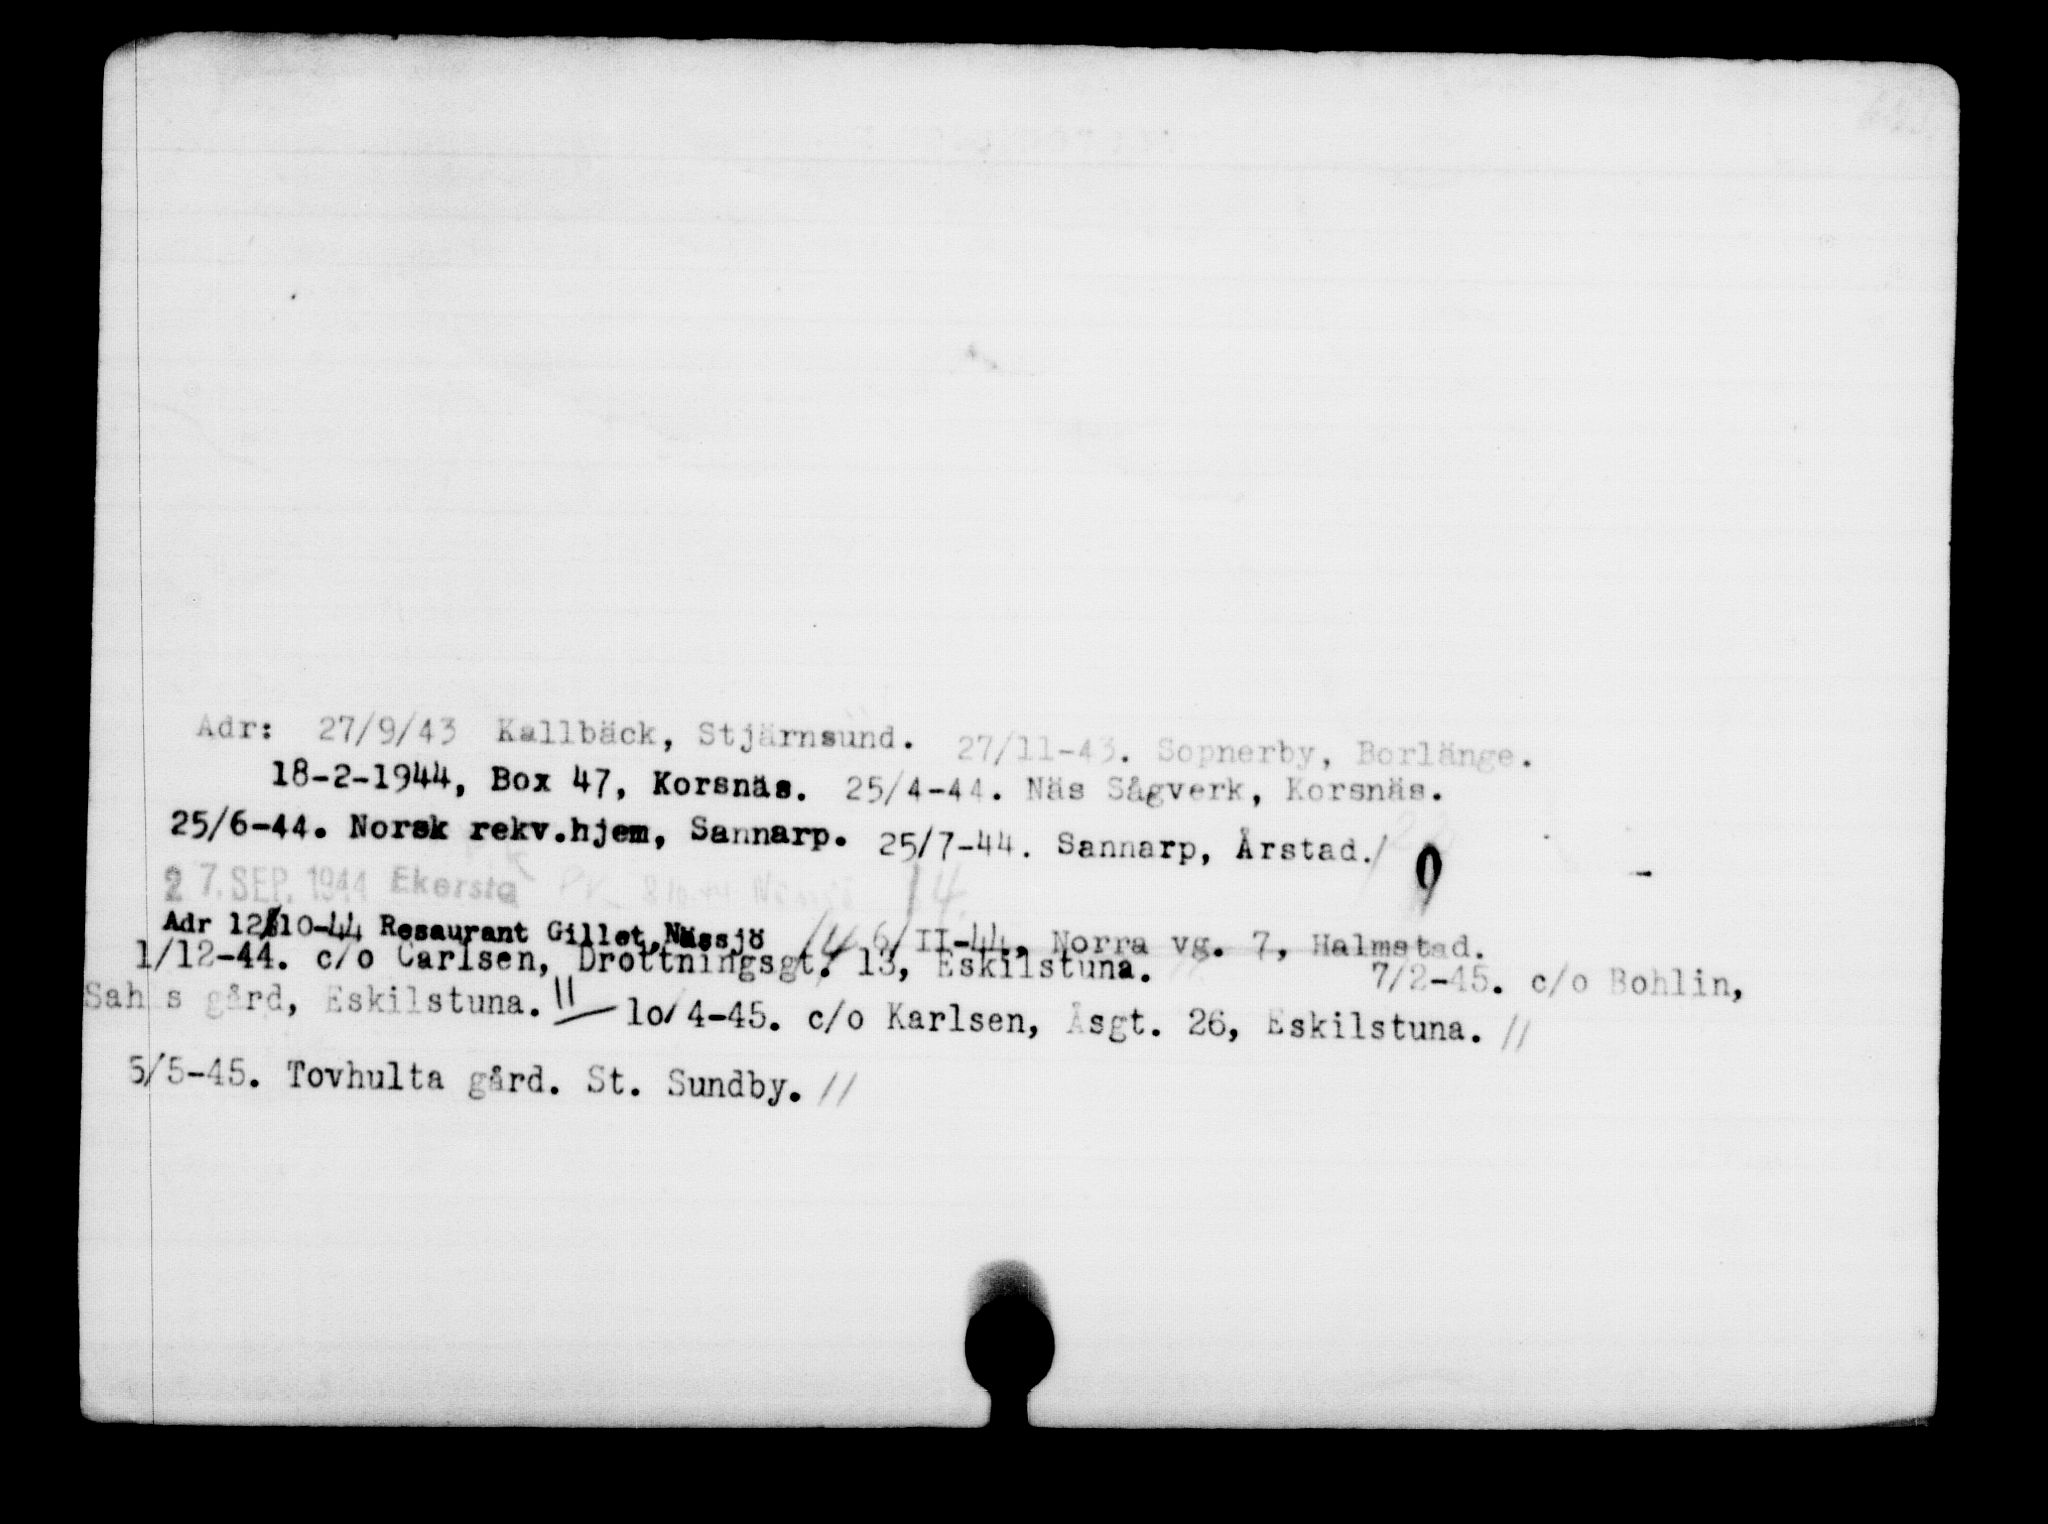 Adr: 27/9/43 Kallbäck, Stjärnsund. 27/11-43. Sopnerby, Borlänge.
18-2-1944, Box 47, Korsnäs. 25/4-44. Näs Sågverk, Korsnäs.
25/6-44. Norsk rekv.hjem, Sannarp. 25/7-44. Sannarp, Årstad./
27. SEP. 1944 Ekersta
Adr 12/10-44 Resaurant Gillet,Nässjö 6/II-44, Norra vg. 7, Halmstad.
1/12-44. c/o Carlsen, Drottningsgt. 13, Eskilstuna. 7/2-45. c/o Bohlin,
gård, Eskilstuna. // 10/4-45. c/o Karlsen, Åsgt. 26, Eskilstuna. //
5/5-45. Tovhulta gård. St. Sundby. //